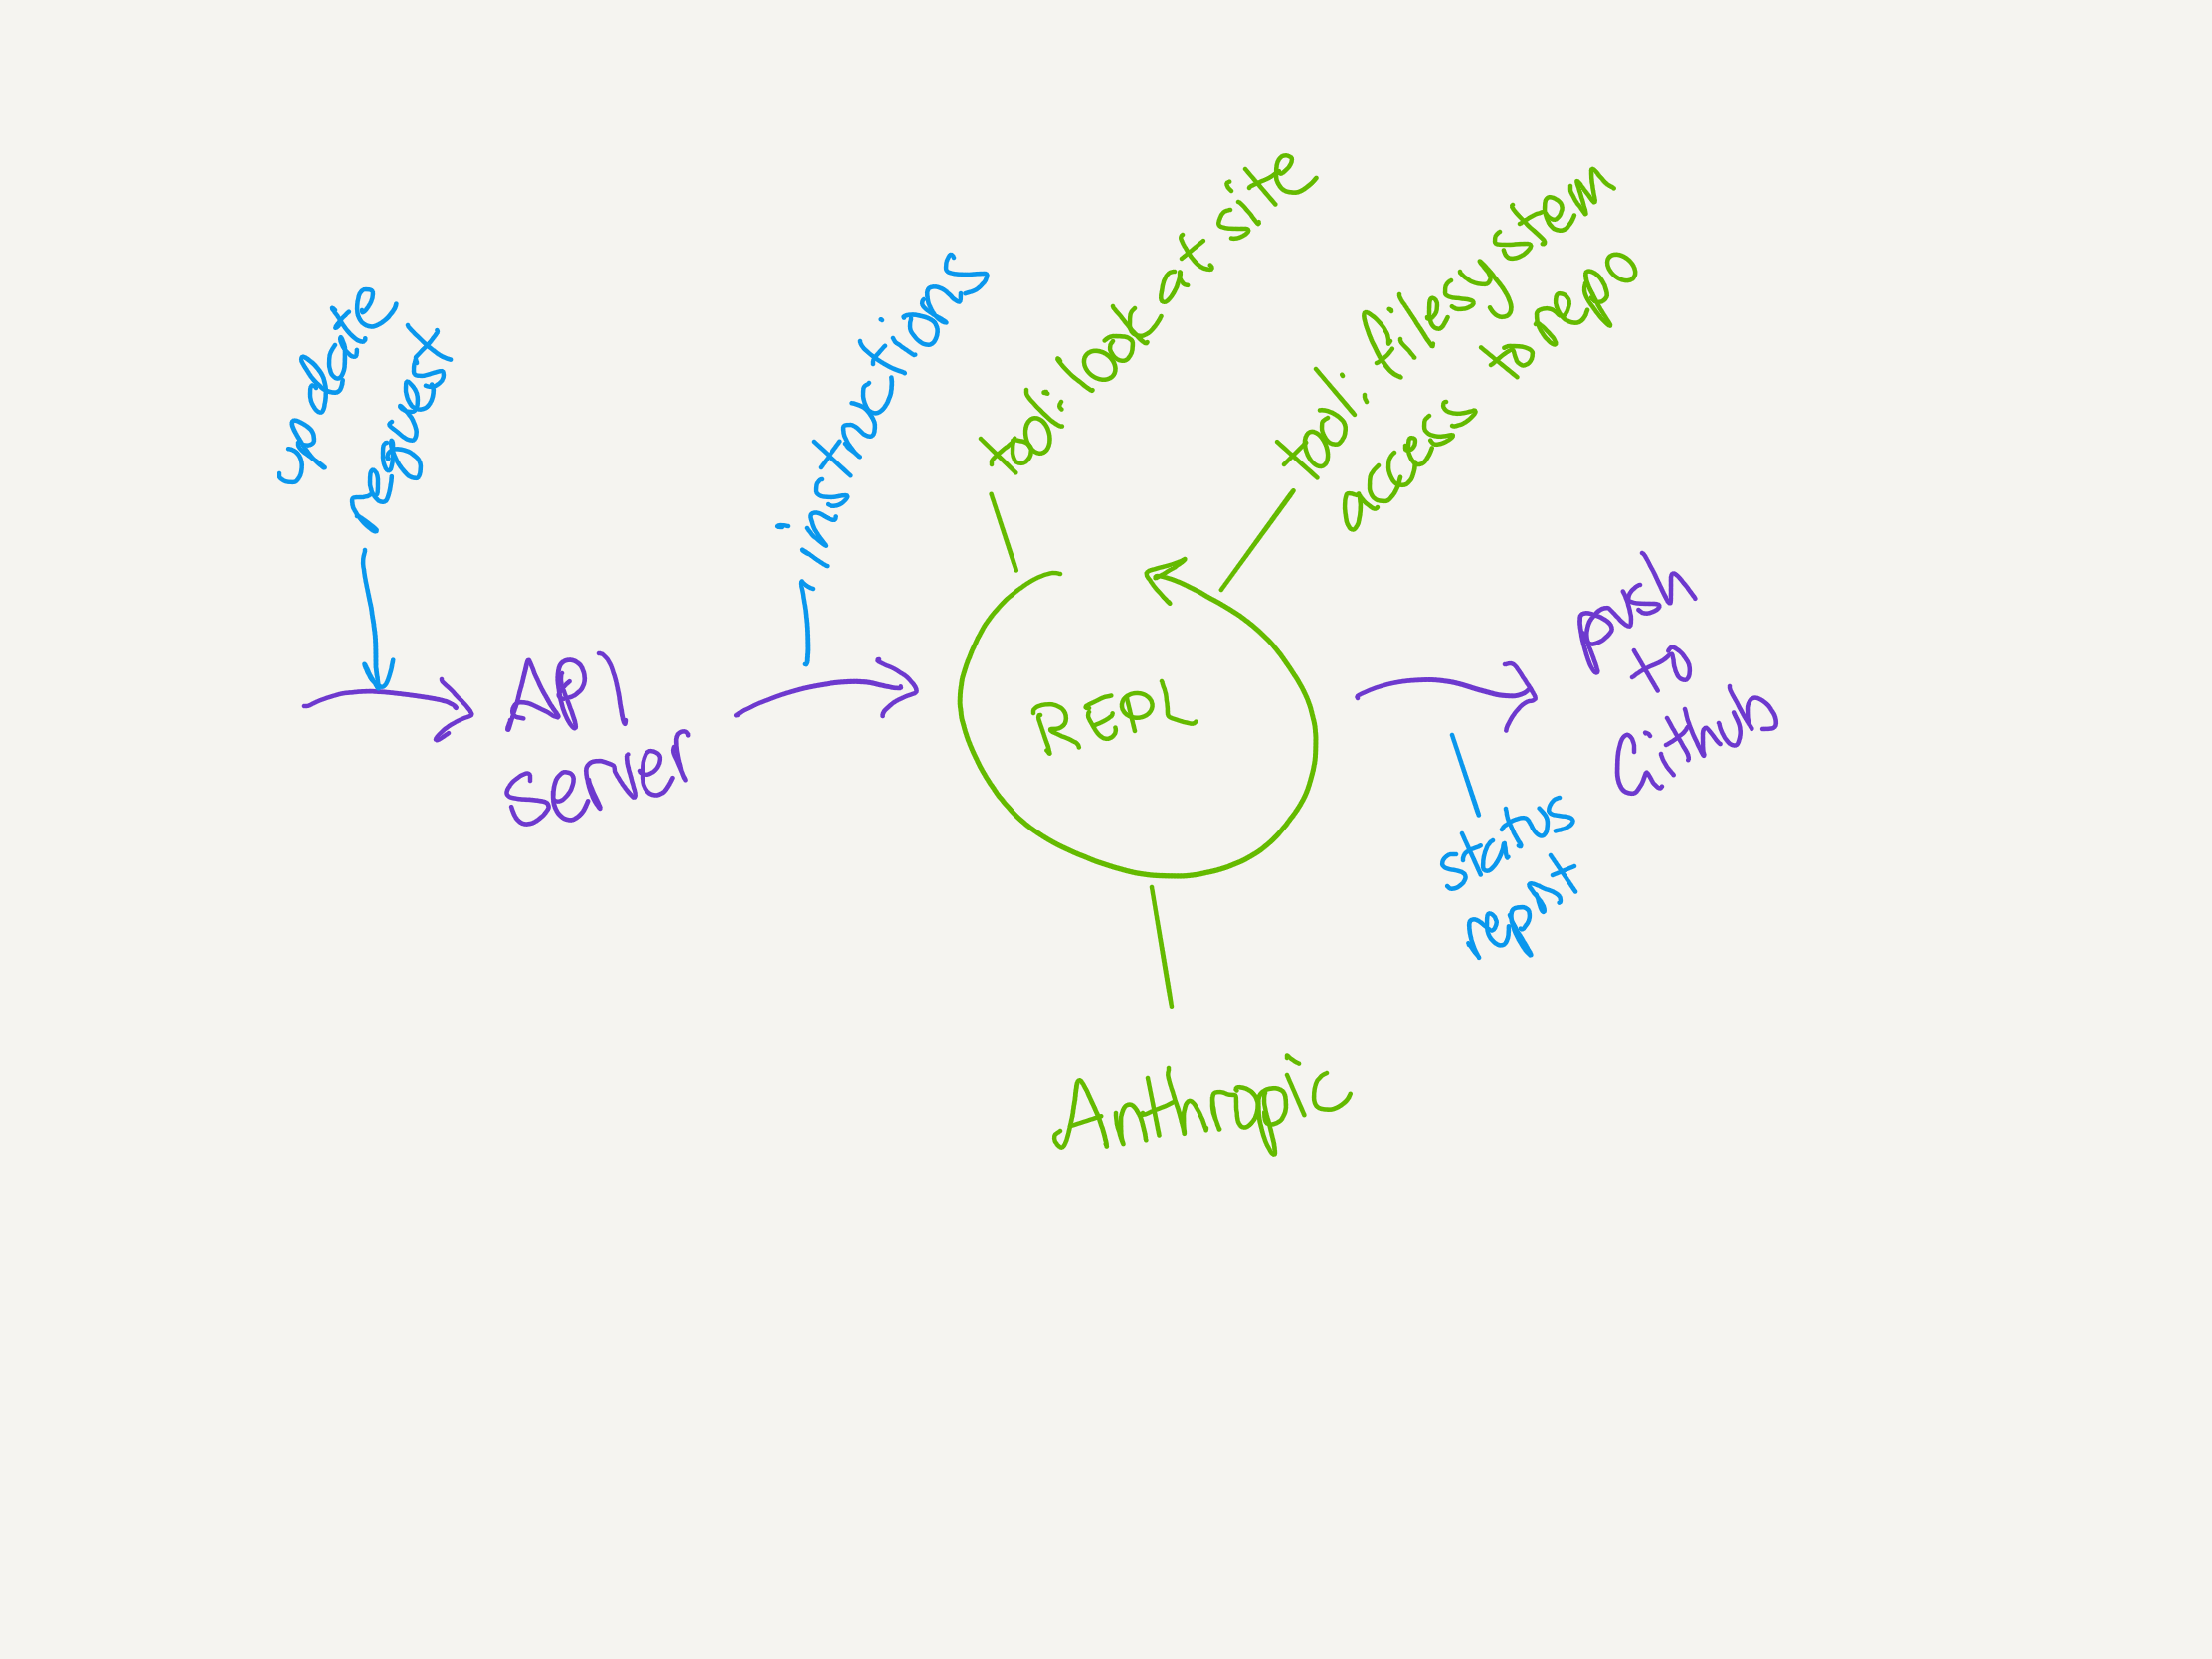 update
request
API
server
instructions
tool: look at site
tool: filesystem
access to repo
REPL
Anthropic
push
to
GitHub
status
report